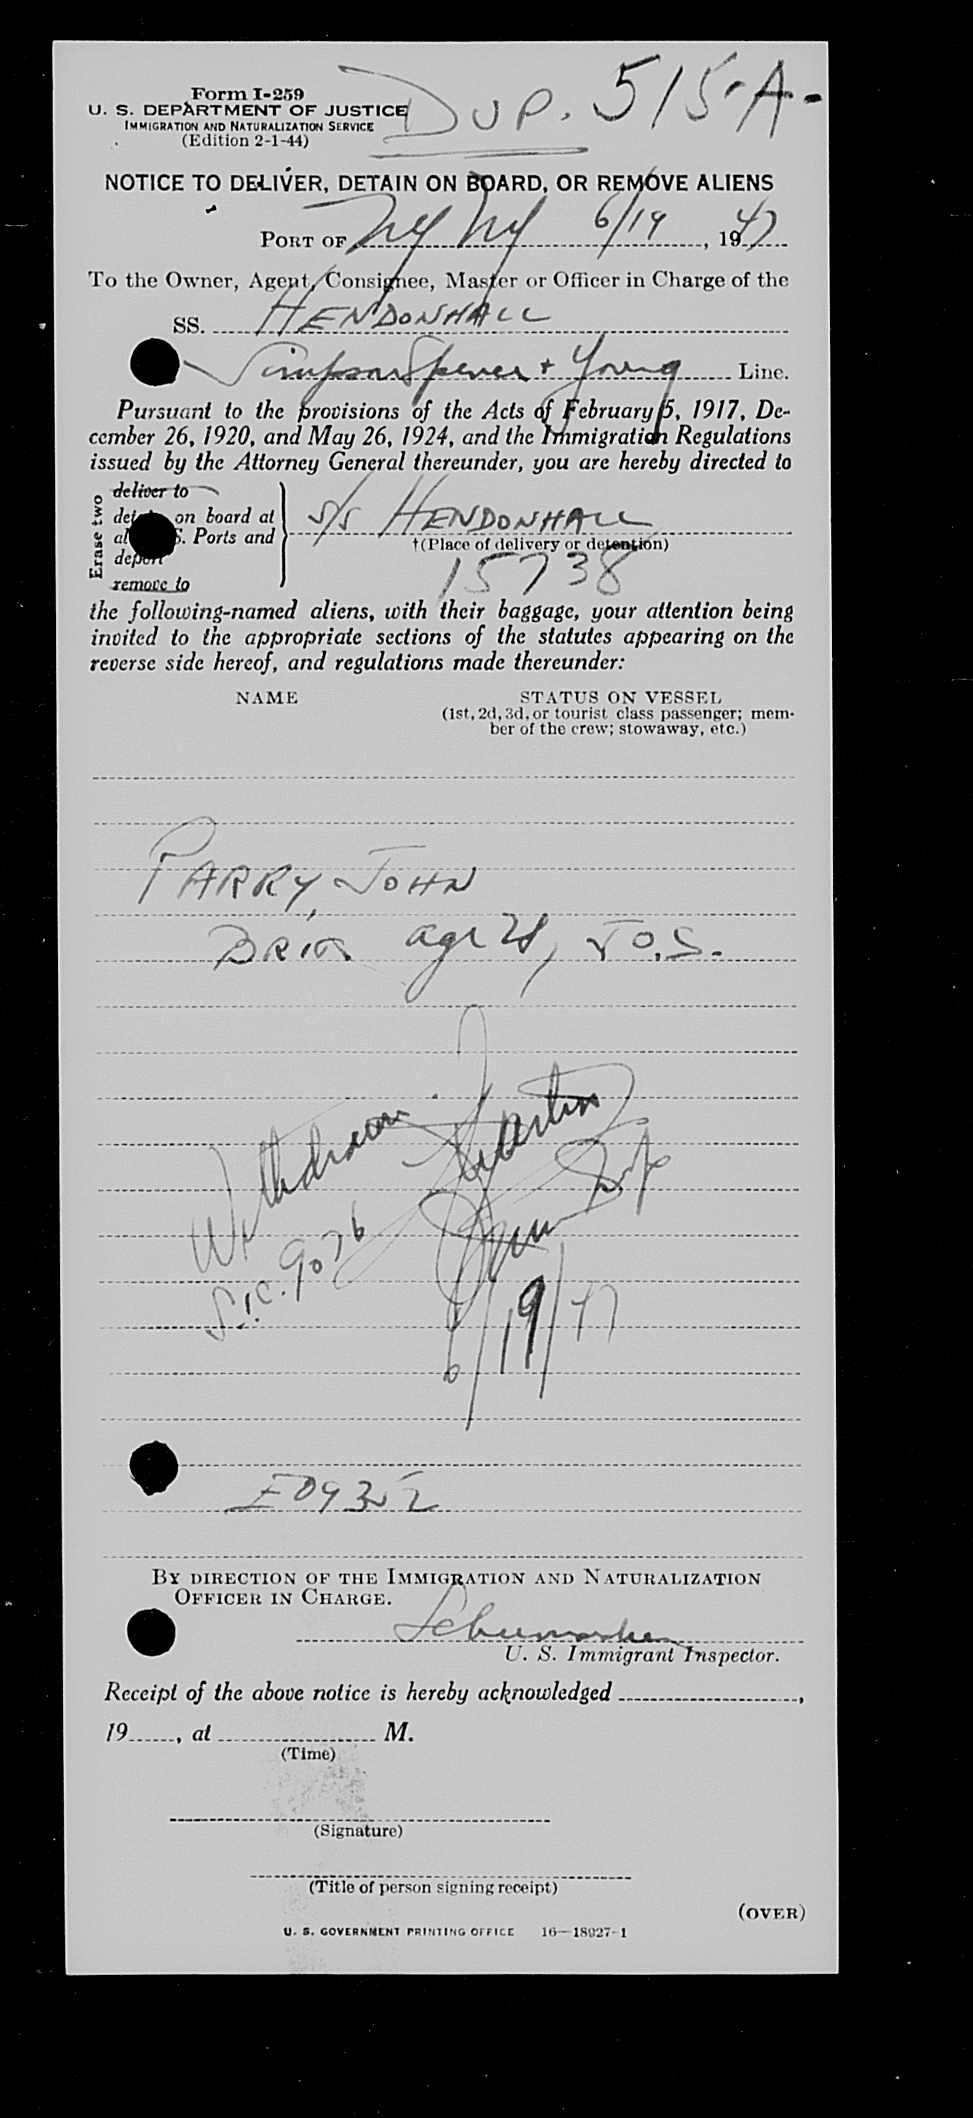 Form I-259
U. S. DEPARTMENT OF JUSTICE
IMMIGRATION AND NATURALIZATION SERVICE
(Edition 2-1-44)
DUP. 515-A-
NOTICE TO DELIVER, DETAIN ON BOARD, OR REMOVE ALIENS
PORT OF NY NY 6/19, 1947
To the Owner, Agent, Consignee, Master or Officer in Charge of the
SS. HENDONHALL
Simpson Spence + Young Line.
Pursuant to the provisions of the Acts of February 5, 1917, De-
cember 26, 1920, and May 26, 1924, and the Immigration Regulations
issued by the Attorney General thereunder, you are hereby directed to
Erase two
deliver to
on board at
S. Ports and
deport
remove to
S/S HENDONHALL
†(Place of delivery or detention)
15738
the following-named aliens, with their baggage, your attention being
invited to the appropriate sections of the statutes appearing on the
reverse side hereof, and regulations made thereunder:
NAME STATUS ON VESSEL
(1st, 2d, 3d, or tourist class passenger; mem-
ber of the crew; stowaway, etc.)
PARRY, JOHN
BRIT. age 21, J.O.S.
Withdrawn
S.I.C. 9076
6/19/47
E09352
BY DIRECTION OF THE IMMIGRATION AND NATURALIZATION
OFFICER IN CHARGE.
Schumacher
U. S. Immigrant Inspector.
Receipt of the above notice is hereby acknowledged ,
19 , at M.
(Time)
(Signature)
(Title of person signing receipt)
(OVER)
U. S. GOVERNMENT PRINTING OFFICE 16—18027-1